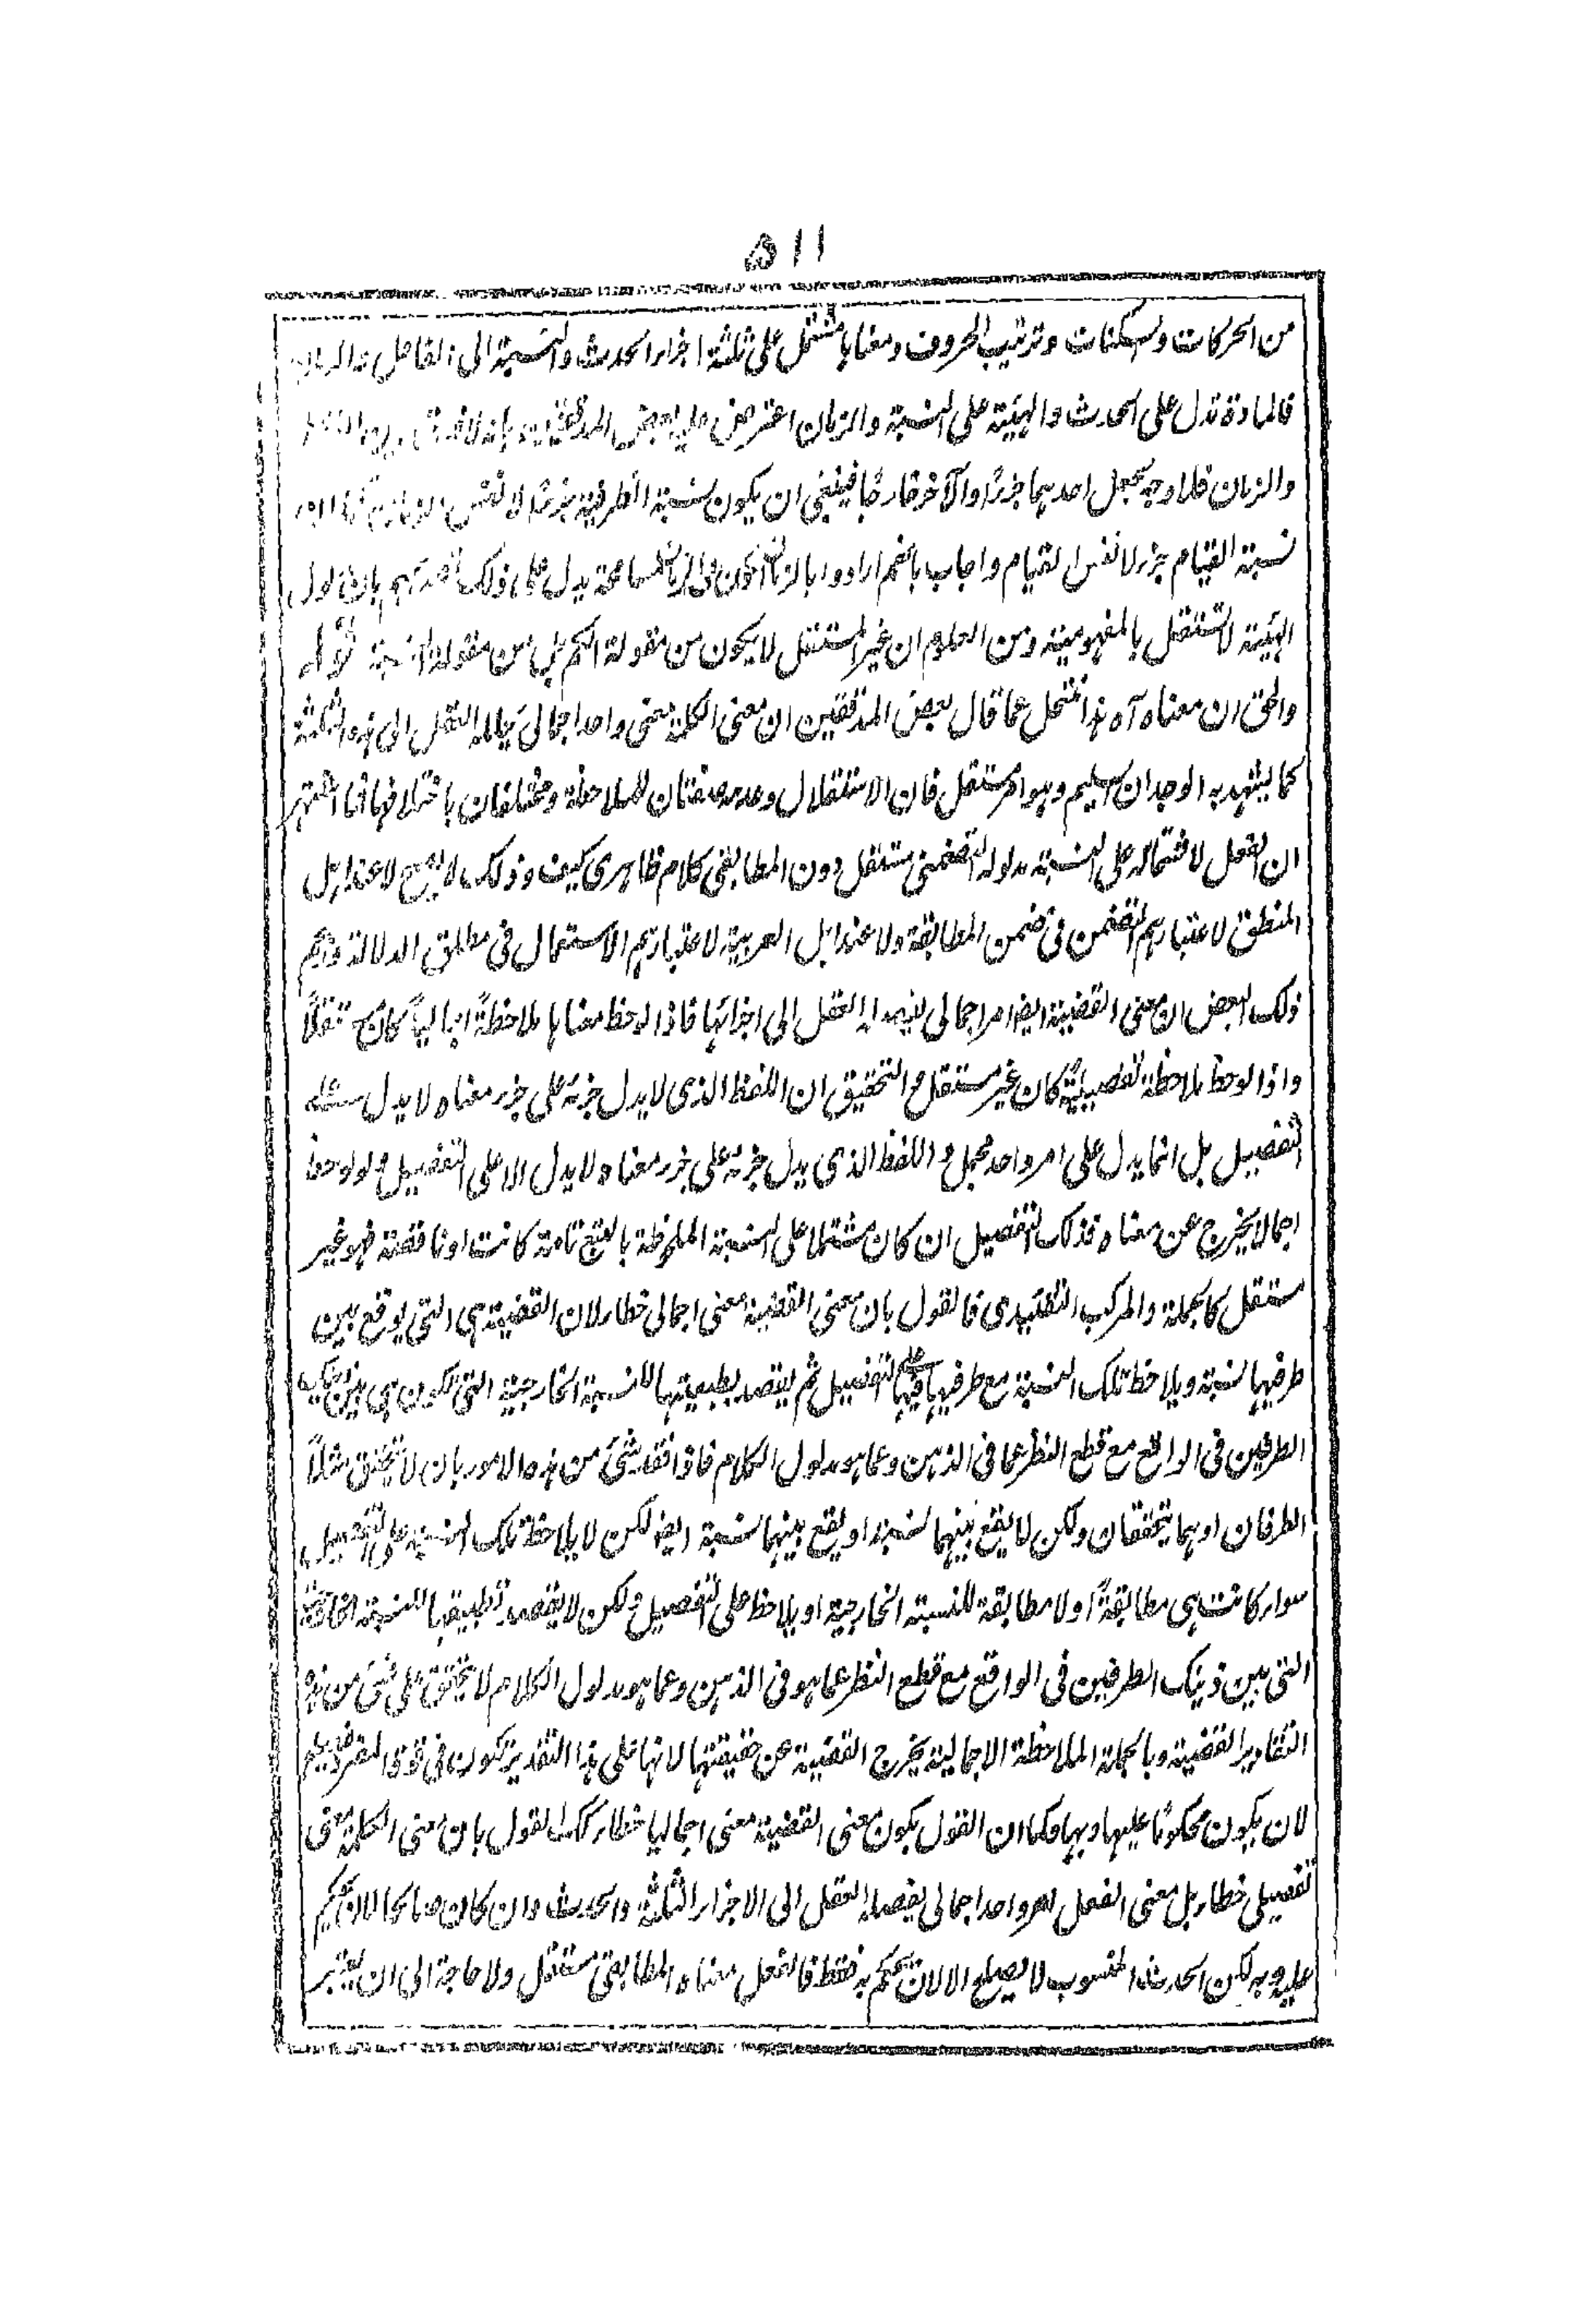 ۵۱۱
من الحركات والسكنات وترتيب الحروف ومعناها مشتمل على ثلثة اجزاء الحدث والنسبة الى الفاعل والزمان
فالمادة تدل على الحدث والهيئة على النسبة والزمان اعترض عليه بعض المدققين بانه لا فرق بين
والزمان فلا وجه لجعل احدهما جزءًا والآخر خارجًا فينبغى ان يكون نسبة الظرفية جزءًا لا نفس الزمان كما ان
نسبة القيام جزء لا نفس القيام واجاب بانهم ارادوا بالزمان مسامحة يدل على ذلك بان مدلول
الهيئة لا تستقل بالمفهومية ومن المعلوم ان غير المستقل لا يكون من مقولة الكم بل من مقولة النسبة قوله
والحق ان معناه آه هذا منتحل عما قال بعض المدققين ان معنى الكلمة معنى واحد اجمالى يحلله العقل الى هذه الثلثة
كما يشهد به الوجدان السليم وهو امر مستقل فان الاستقلال وعدمه صفتان للملاحظة ومختلفان باختلافها فما اشتهر
ان الفعل لاشتماله على النسبة مدلوله التضمنى مستقل دون المطابقى كلام ظاهرى كيف وذلك لا يصح لا عند اهل
المنطق لاعتبارهم التضمن فى ضمن المطابقة ولا عند اهل العربية لاعتبارهم الاستعمال فى مطلق الدلالة وزعم
ذلك البعض ان معنى القضية ايضا امر اجمالى العقل الى اجزائها فاذا لوحظ معناها ملاحظةً اجماليةً كان مستقلًا
واذا لوحظ ملاحظة تفصيليةً كان غير مستقل والتحقيق ان اللفظ الذى لا يدل جزئه على جزء معناه لا يدل على
التفصيل بل انما يدل على امر واحد مجمل واللفظ الذى يدل جزئه على جزء معناه لا يدل الا على التفصيل ولو لوحظ
اجمالا يخرج عن معناه فذلك التفصيل ان كان مشتملا على النسبة الملحوظة بالتبع تامة كانت او ناقصة فهو غير
مستقل كالجملة والمركب التقييدى فالقول بان معنى القضية معنى اجمالى خطاء لان القضية هى التى يوقع بين
طرفيها نسبة ويلاحظ تلك النسبة مع طرفيها فيها على التفصيل ثم يقصد تطبيقها للنسبة الخارجية التى تكون هى بين ذينك
الطرفين فى الواقع مع قطع النظر عما فى الذهن وعما هو مدلول الكلام فاذا فقد شئ من هذه الامور بان لا يتحقق مثلًا
الطرفان او هما يتحققان ولكن لا يقع بينهما نسبة او يقع بينهما نسبة ايضا لكن لا يلاحظ تلك النسبة على التفصيل
سواء كانت هى مطابقةً او لا مطابقة للنسبة الخارجية او يلاحظ على التفصيل ولكن لا يقصد تطبيقها للنسبة الخارجية
التى بين ذينك الطرفين فى الواقع مع قطع النظر عما هو فى الذهن وعما هو مدلول الكلام لا يتحقق على شئ من هذه
التقادير القضية وبالجملة الملاحظة الاجمالية يخرج القضية عن حقيقتها لانها على هذا التقدير تكون فى قوة المفرد فيصلح
لان يكون محكومًا عليها وبها وكما ان القول بكون معنى القضية معنى اجماليا خطاء كذلك القول بان معنى الكلمة معنى
تفصيلى خطاء بل معنى الفعل امر واحد اجمالى يفصله العقل الى الاجزاء الثلثة والحدث وان كان صالحا لان يحكم
عليه وبه لكن الحدث المنسوب لا يصلح الا لان يحكم به فقط فالفعل معناه المطابقى مستقل ولا حاجة الى ان يعتبر